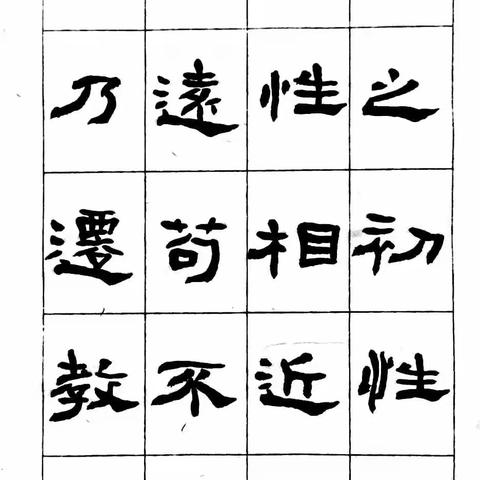 之初性
性相近
遠苟不
乃遷教